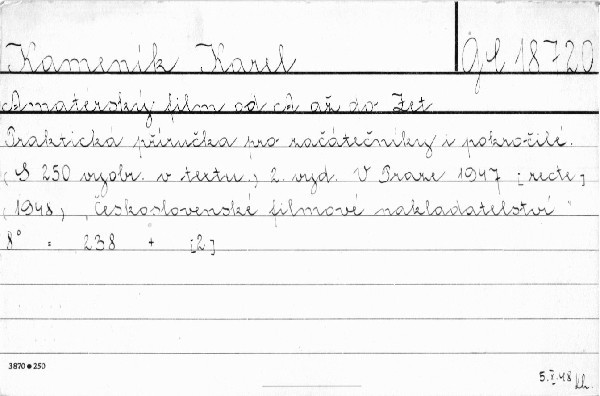 Kameník Karel
Gd 18720
Amatérský film od A až do Zet
Praktická příručka pro začátečníky i pokročilé.
(S 250 vyobr. v textu,) 2. vyd. V Praze 1947 [recte]
(1948,) „Československé filmové nakladatelství“
8° = 238 + [2]
3870 • 250
5.X.48